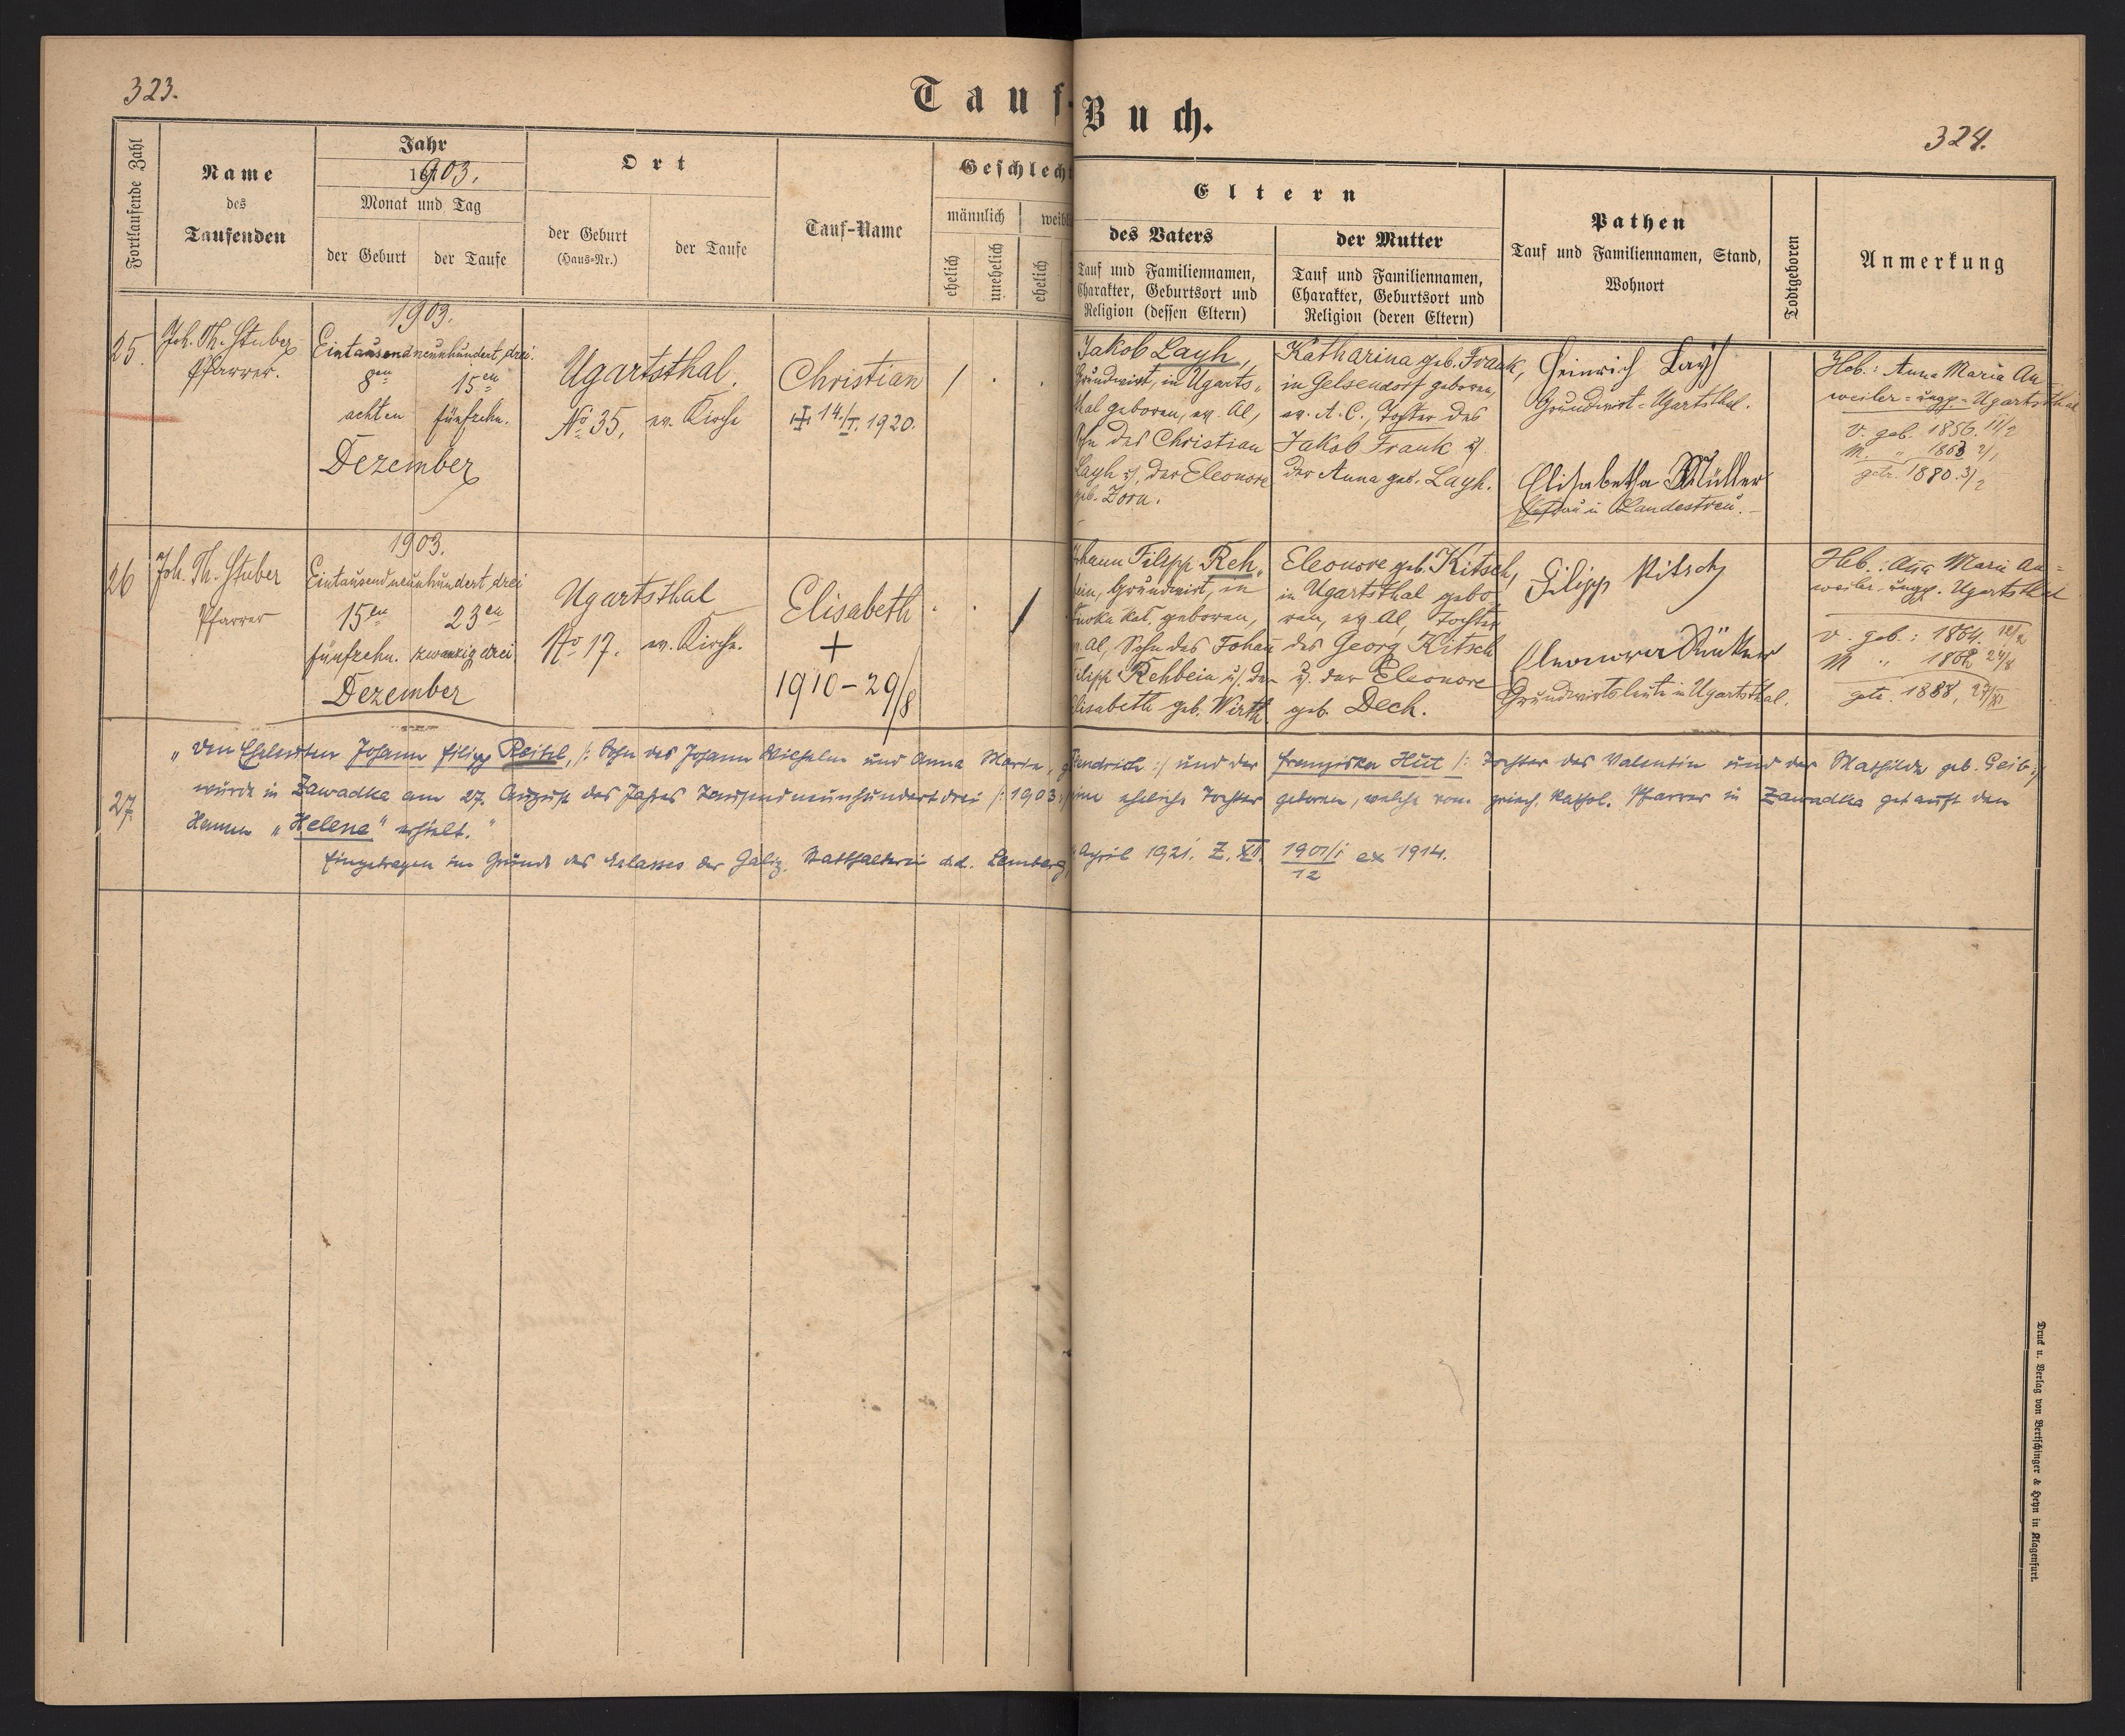 323.
Tauf-Buch.
324.
Fortlaufende Zahl
Name
des
Taufenden
Jahr
1903.
Monat und Tag
der Geburt
der Taufe
Ort
der Geburt
(Haus-Nr.)
der Taufe
Tauf-Name
Geschlecht
männlich
weibl
ehelich
unehelich
ehelich
Eltern
des Vaters
Tauf und Familiennamen,
Charakter, Geburtsort und
Religion (dessen Eltern)
der Mutter
Tauf und Familiennamen,
Charakter, Geburtsort und
Religion (deren Eltern)
Pathen
Tauf und Familiennamen, Stand,
Wohnort
Todtgeboren
Anmerkung
25.
Joh. Th. Stuber
Pfarrer.
1903.
Eintausendneunhundert drei.
8en
15en
achten
fünfzehn.
Dezember
Ugartsthal.
No 35.
ev. Kirche
Christian
14./I. 1920.
/
.
.
Jakob Layh,
Grundwirt, in Ugarts-
thal geboren, ev. Al,
Sohn des Christian
Layh u. der Eleonore
geb. Zorn.
Katharina geb. Frank,
in Gelsendorf geboren,
ev. A. C., Tochter des
Jakob Frank u.
der Anna geb. Layh.
Heinrich Layh
Grundwirt - Ugartsthal.
Elisabetha Müller
Ehefrau in Landestreu.
Heb.: Anna Maria An-
weiler = ungp. = Ugartsthal
V. geb. 1856. 11/2
M. " 1863 2/1
getr. 1880. 3/2
26
Joh. Th. Stuber
Pfarrer
1903.
Eintausendneunhundert drei
15en
23en
fünfzehn.
zwanzig drei.
Dezember
Ugartsthal
No 17.
ev. Kirche.
Elisabeth
+
1910 - 29/8
.
.
/
Johann Filipp Reh-
bein, Grundwirt, in
geboren,
ev. Al, Sohn des Johan
Filipp Rehbein u. der
Elisabeth geb. Wirth
Eleonore geb. Kitsch,
in Ugartsthal gebo
ren, ev. Al, Tochter
des Georg Kitsch
u. der Eleonore
geb. Dech.
Filipp Kitsch
Eleonora
Grundwirtsleute in Ugartsthal.
Heb.: Anna Maria An-
weiler, ungp. Ugartsthal
V. geb.: 1864.
M " 1862 24/8
getr. 1888, 27/XI
27.
„Den Eheleuten Johann Filipp Reitel, /: Sohn des Johann Wilhelm und Anna Maria, g. Fendrich :/ und der Franziska Hüt /: Tochter des Valentin und der Mathilde geb. Geib :/
wurde in Zawadka am 27. August des Jahres Tausendneunhundert drei /: 1903 :/ eine eheliche Tochter geboren, welche vom griech. kathol. Pfarrer in Zawadka getauft den
Namen „Helena" erhielt."
Eingetragen im Grunde des Erlasses der Galiz. Statthalterei d.d. Lemberg, April 1921. Z. XII. 1901/i ex 1914.
12
Druck u. Verlag von Bertschinger & Heyn in Klagenfurt.